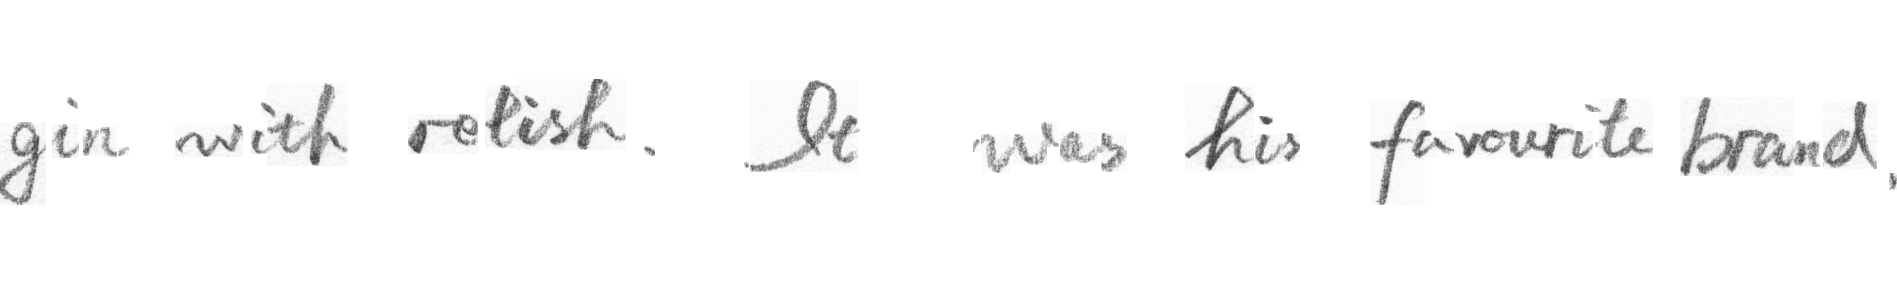 gin with relish. It was his favourite brand,